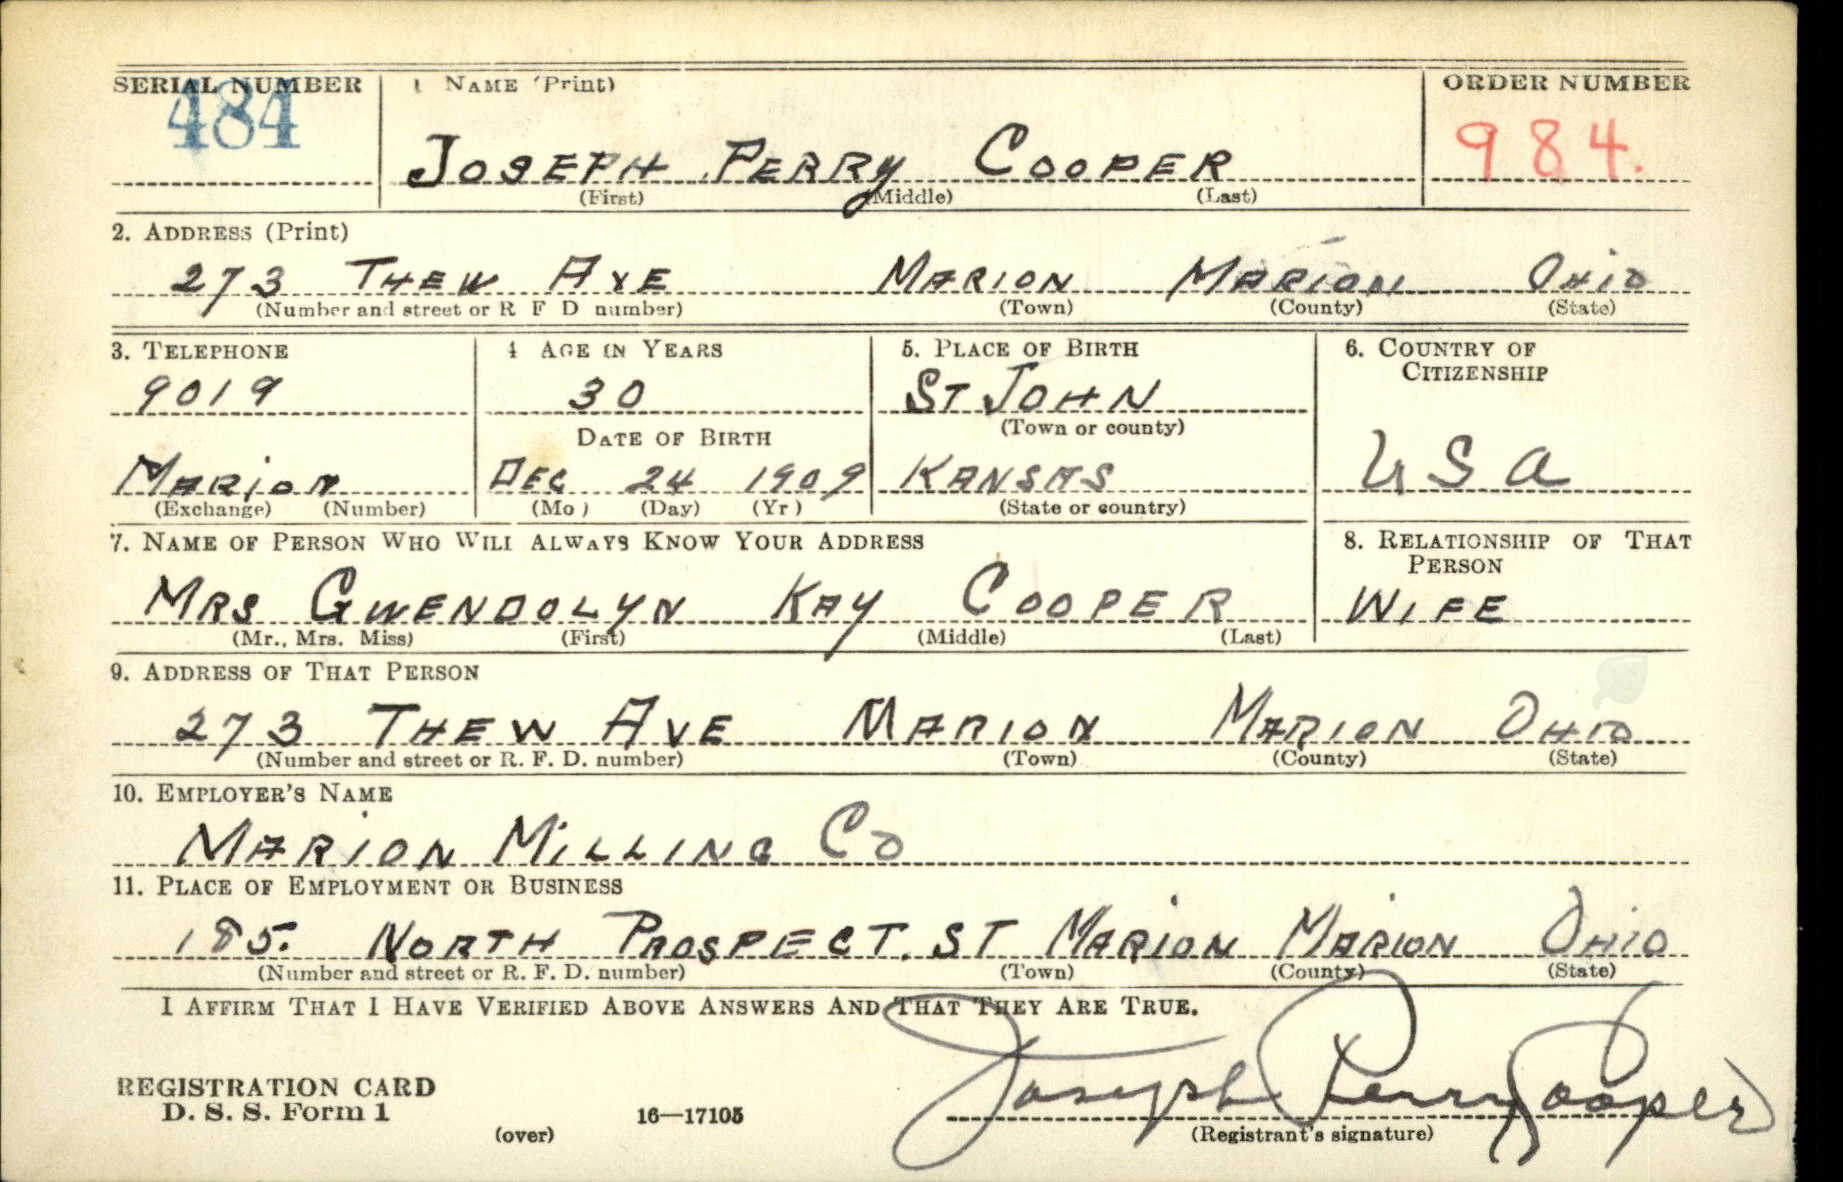 SERIAL NUMBER 1 NAME (Print) ORDER NUMBER
484 JOSEPH PERRY COOPER 984.
(First) (Middle) (Last)
2. ADDRESS (Print)
273 THEW AVE MARION MARION OHIO
(Number and street or R. F. D. number) (Town) (County) (State)
3. TELEPHONE 4 AGE IN YEARS 5. PLACE OF BIRTH 6. COUNTRY OF CITIZENSHIP
9019 30 ST JOHN
DATE OF BIRTH (Town or county)
MARION DEC 24 1909 KANSAS USA
(Exchange) (Number) (Mo) (Day) (Yr) (State or country)
7. NAME OF PERSON WHO WILL ALWAYS KNOW YOUR ADDRESS 8. RELATIONSHIP OF THAT PERSON
MRS GWENDOLYN KAY COOPER WIFE
(Mr., Mrs. Miss) (First) (Middle) (Last)
9. ADDRESS OF THAT PERSON
273 THEW AVE MARION MARION OHIO
(Number and street or R. F. D. number) (Town) (County) (State)
10. EMPLOYER'S NAME
MARION MILLING CO
11. PLACE OF EMPLOYMENT OR BUSINESS
185. NORTH PROSPECT. ST MARION MARION OHIO
(Number and street or R. F. D. number) (Town) (County) (State)
I AFFIRM THAT I HAVE VERIFIED ABOVE ANSWERS AND THAT THEY ARE TRUE.
REGISTRATION CARD
D. S. S. Form 1 16—17105 Joseph Perry Cooper
(over) (Registrant's signature)